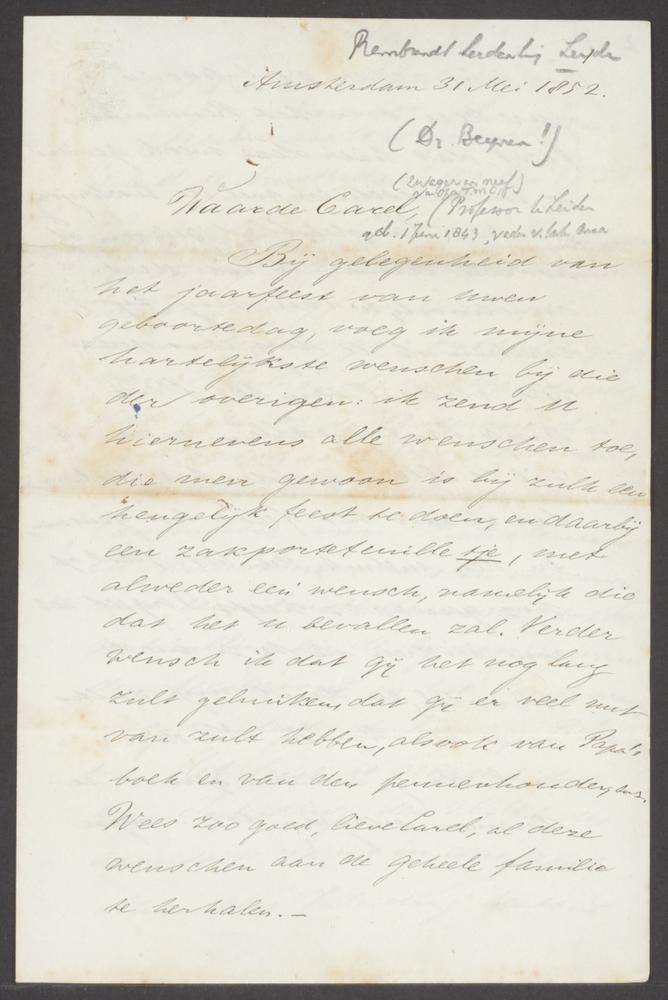 Rembrandt
Amsterdam 31 Mei 1852.
(Dr. Beynen!)
(Zwager en neef)
Waarde Carel, (Professor te Leiden
geb. 1 Juni 1843, vader v.
Bij gelegenheid van
het jaarfeest van uwen
geboortedag, voeg ik mijne
hartelijkste wenschen bij die
der overigen: ik zend U
hiernevens alle wenschen toe,
die men gewoon is bij zulk een
heugelijk feest te doen, en daarbij
een zakportefeuille tje, met
alweder een wensch, namelijk die
dat het u bevallen zal. Verder
wensch ik dat gij het nog lang
zult gebruiken, dat gij er veel nut
van zult hebben, alsook van Papa's
boek en van den pennenhouder, enz.
Wees zoo goed, lieve Carel, al deze
wenschen aan de geheele familie
te herhalen. —